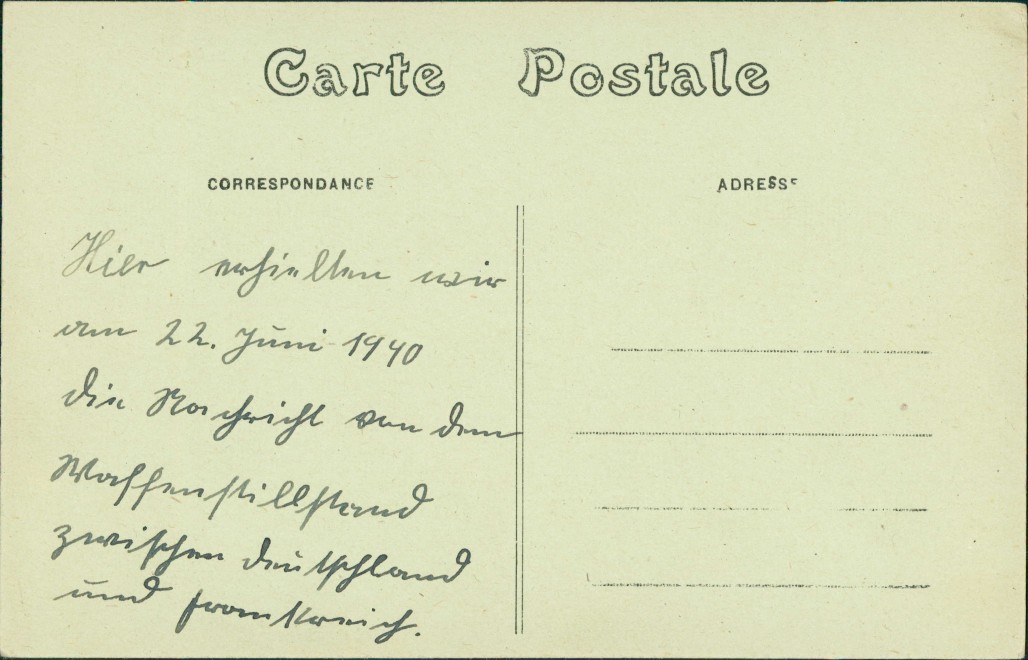 Carte Postale
CORRESPONDANCE
ADRESSE
Hier erhielten wir
am 22. Juni 1940
die Nachricht von dem
Waffenstillstand
zwischen Deutschland
und Frankreich.